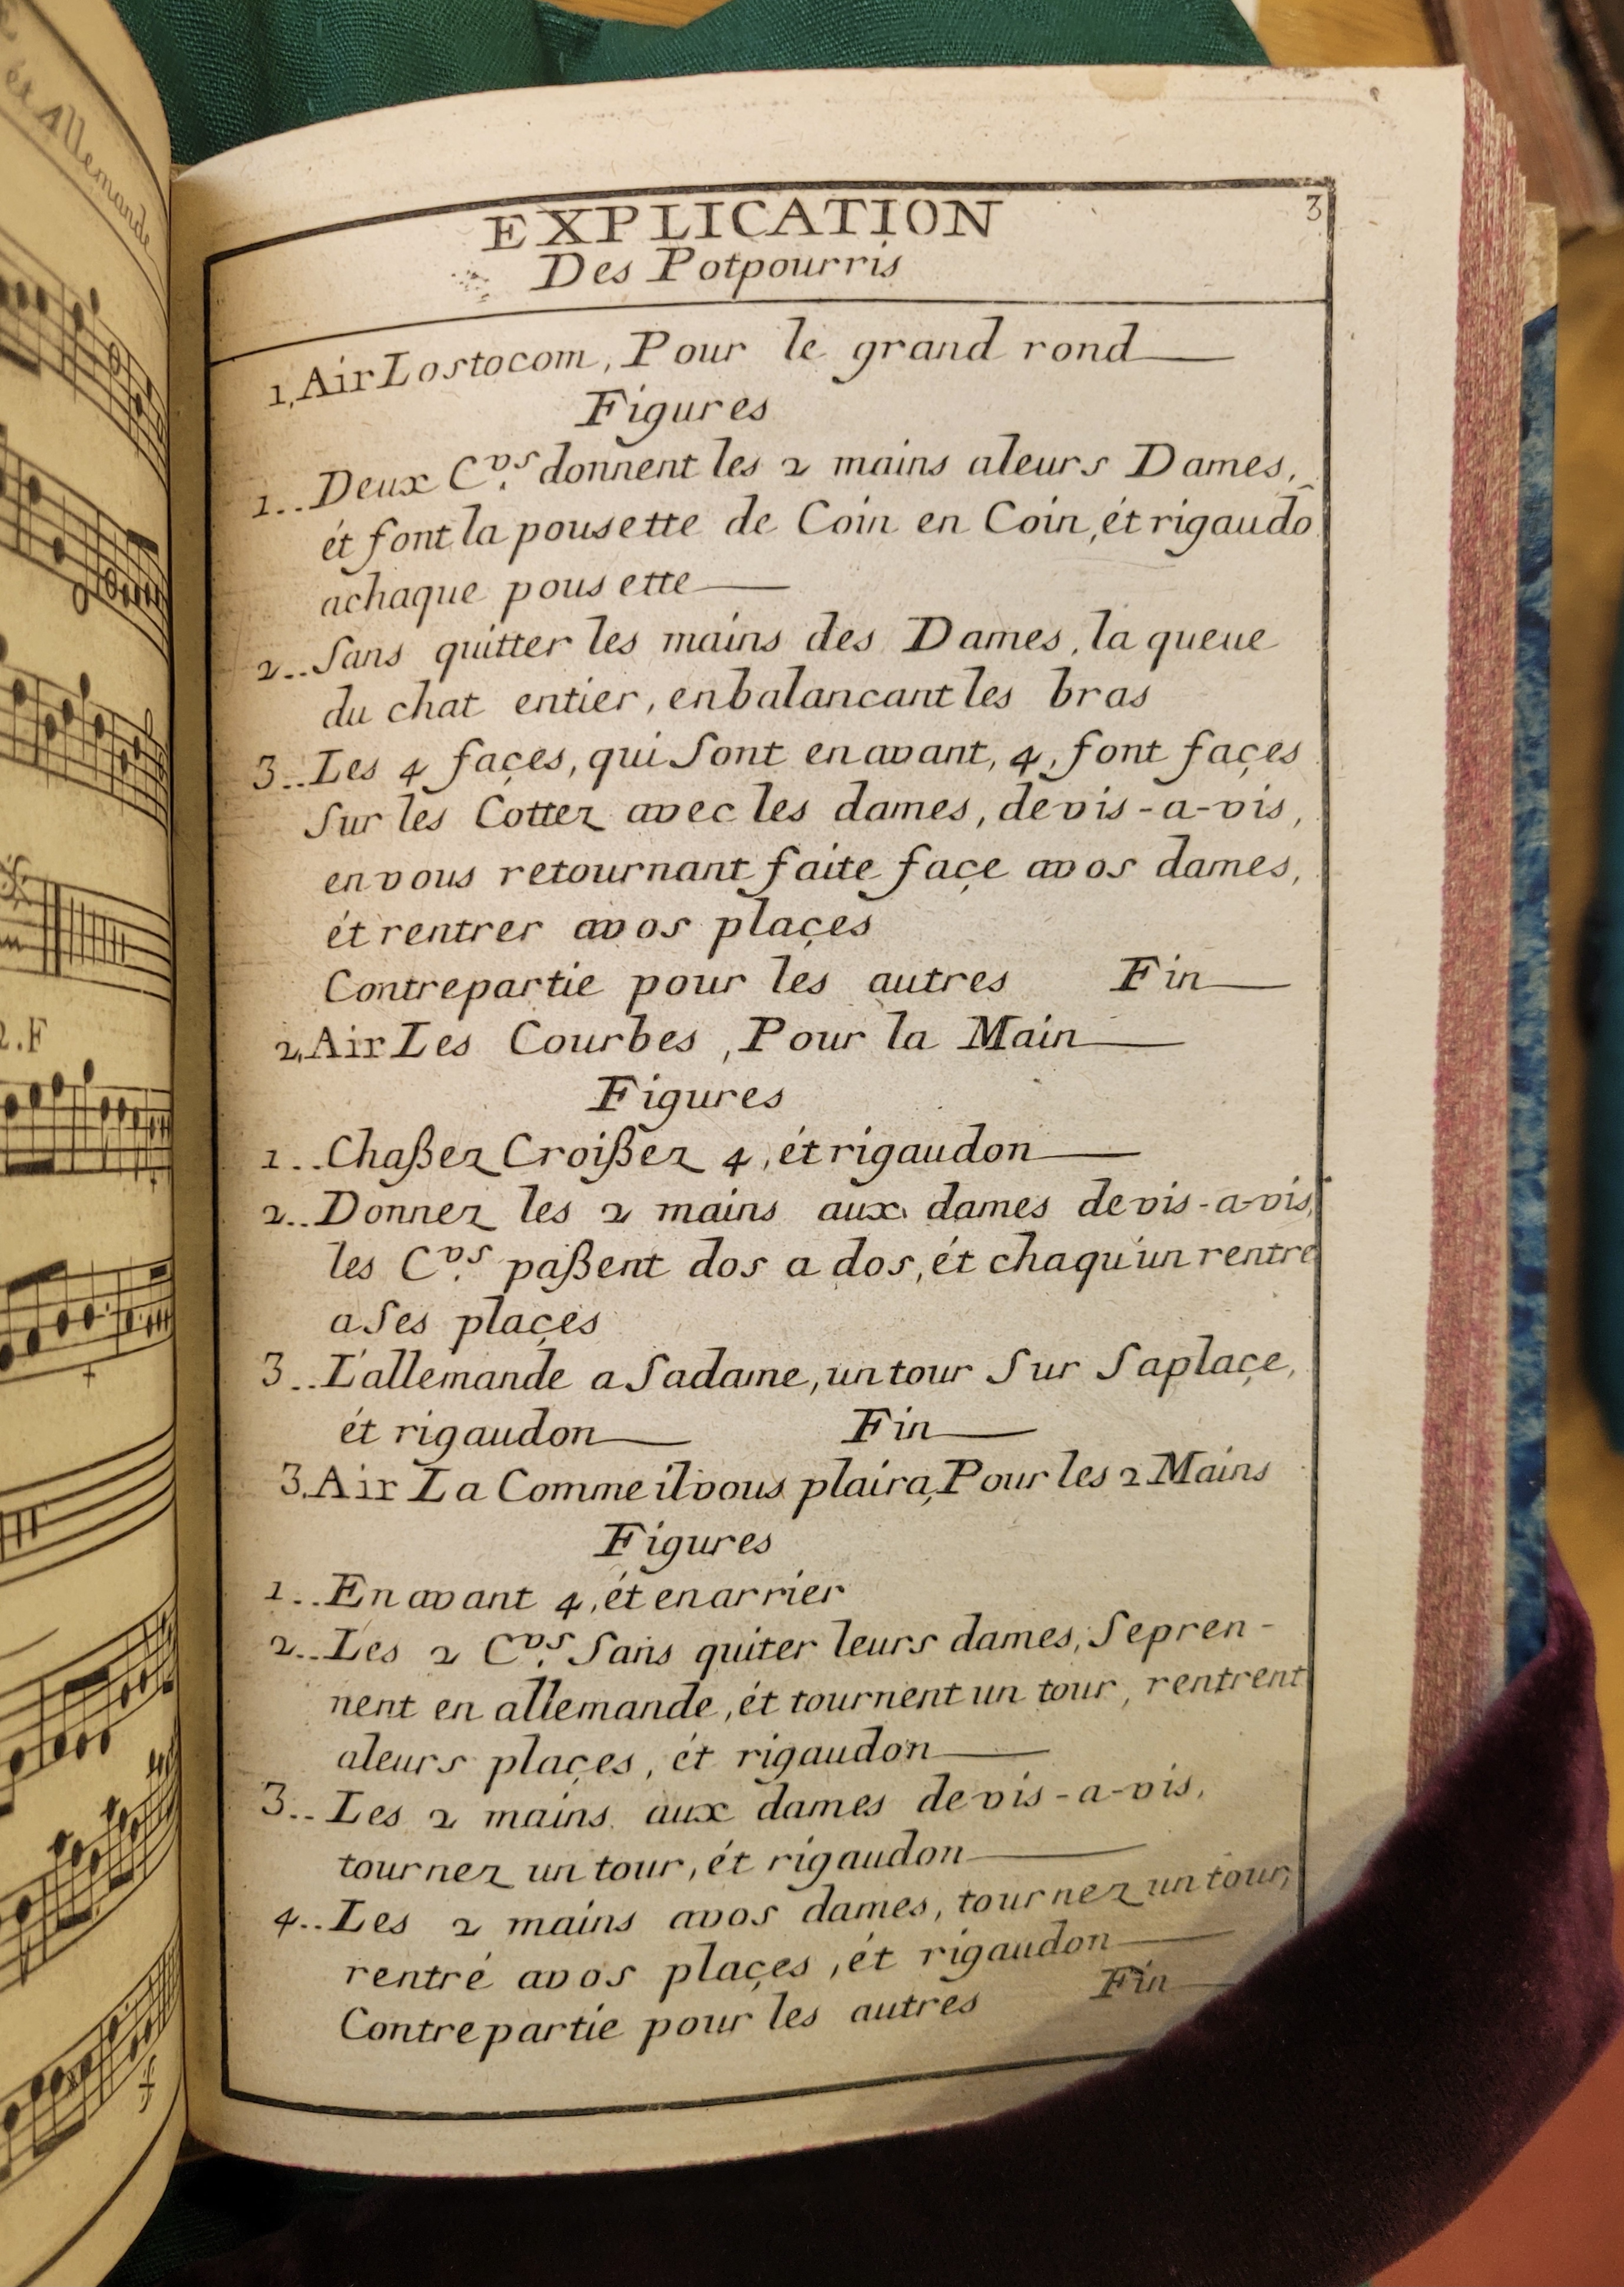 et Allemande
2.F
3
EXPLICATION
Des Potpourris
1, Air Lostocom, Pour le grand rond
Figures
1.. Deux C.vs donnent les 2 mains aleurs Dames,
ét font la pousette de Coin en Coin, ét rigaudõ
achaque pousette
2.. Sans quitter les mains des Dames, la queue
du chat entier, en balancant les bras
3.. Les 4 façes, qui Sont en avant, 4, font façes
Sur les Cottez avec les dames, de vis-a-vis,
en vous retournant faite façe avos dames,
ét rentrer avos plaçes
Contrepartie pour les autres Fin
2, Air Les Courbes, Pour la Main
Figures
1.. Chaßez Croißez 4, ét rigaudon
2.. Donnez les 2 mains aux dames de vis-a-vis,
les C.vs paßent dos a dos, ét chaqu'un rentre
a Ses plaçes
3.. L'allemande a Sadame, un tour Sur Saplaçe,
ét rigaudon Fin
3, Air La Comme il vous plaira, Pour les 2 Mains
Figures
1.. En avant 4, ét en arrier
2.. Les 2 C.vs Sans quiter leurs dames, Sepren-
nent en allemande, ét tournent un tour, rentrent
aleurs plaçes, ét rigaudon
3.. Les 2 mains aux dames de vis-a-vis,
tournez un tour, ét rigaudon
4.. Les 2 mains avos dames, tournez un tour,
rentré avos plaçes, ét rigaudon
Contrepartie pour les autres Fin